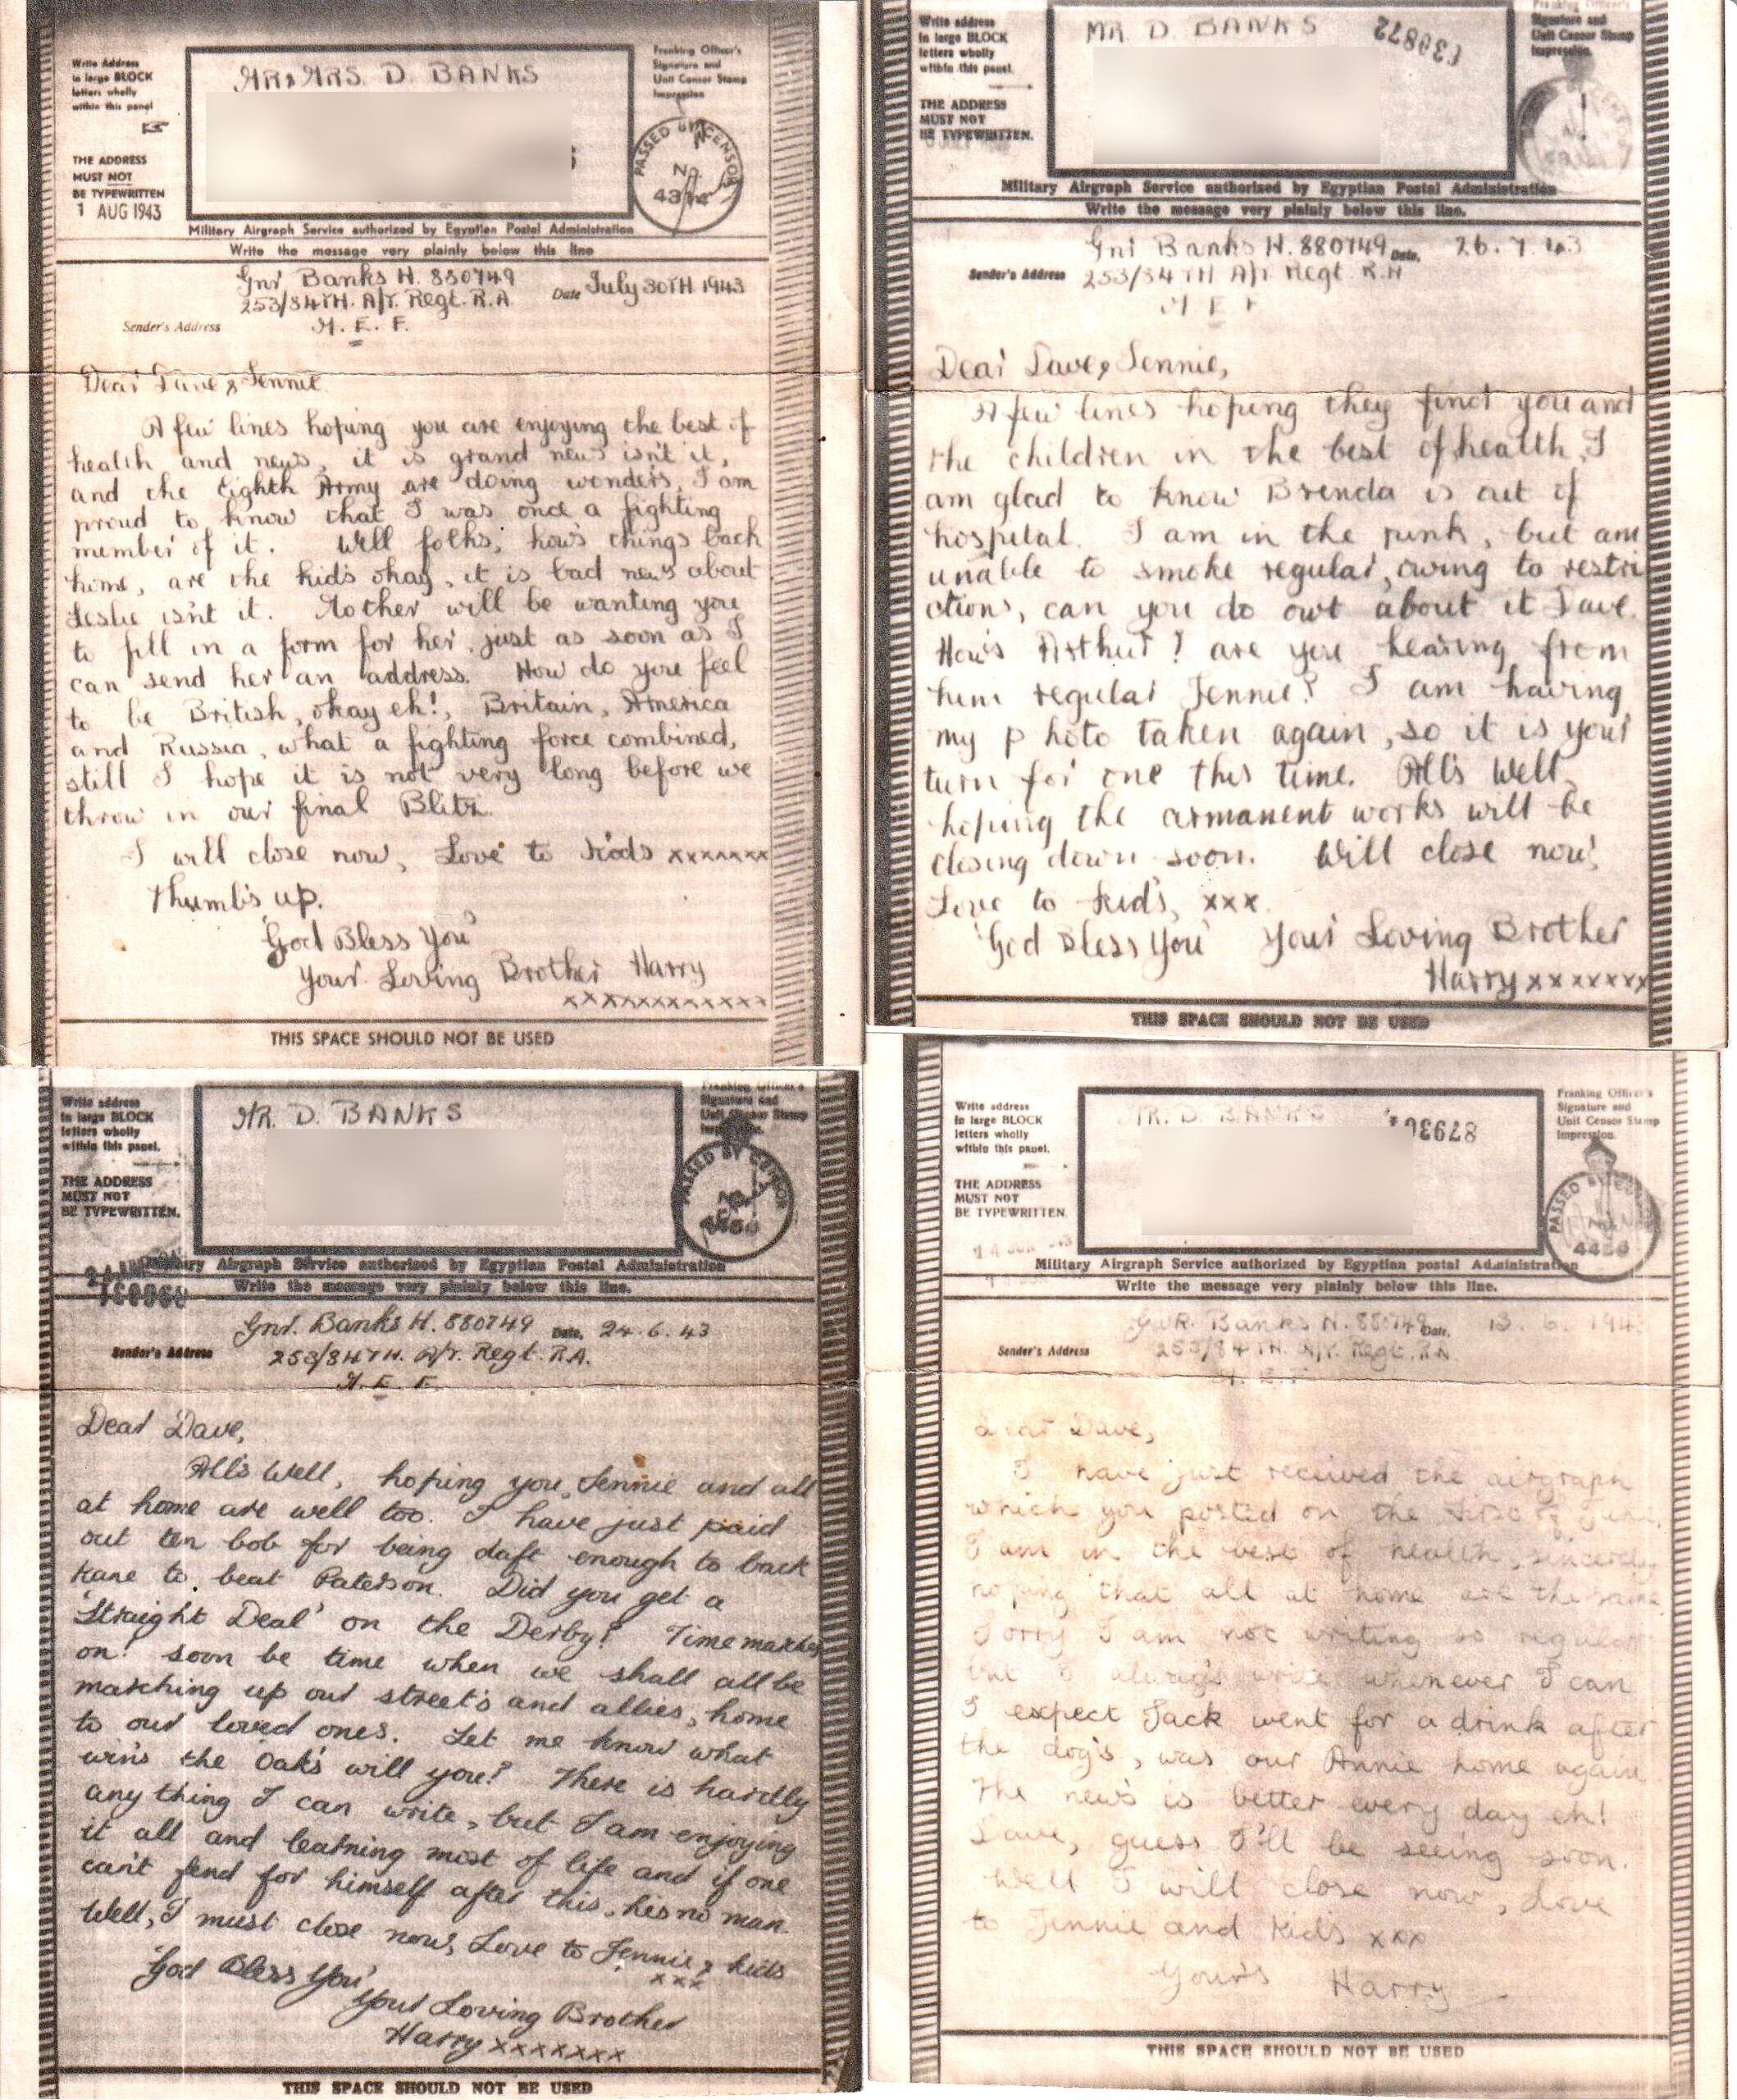 Write Address
in large BLOCK
letters wholly
within this panel
THE ADDRESS
MUST NOT
BE TYPEWRITTEN
1 AUG 1943
MR & MRS. D. BANKS
Franking Officer's
Signature and
Unit Censor Stamp
Impression
PASSED BY CENSOR
No
Military Airgraph Service authorized by Egyptian Postal Administration
Write the message very plainly below this line
Gnr Banks H. 880749
253/84TH. A/T. Regt. R.A.
M. E. F.
Sender's Address
Date July 30TH 1943
Dear Dave & Jennie.
A few lines hoping you are enjoying the best of
health and news, it is grand news isn't it,
and the Eighth Army are doing wonders, I am
proud to know that I was once a fighting
member of it. Well folks, how's things back
home, are the kid's okay, it is bad news about
Leslie isn't it. Mother will be wanting you
to fill in a form for her, just as soon as I
can send her an address. How do you feel
to be British, okay eh!, Britain, America
and Russia, what a fighting force combined,
still I hope it is not very long before we
throw in our final Blitz.
I will close now, Love to Kids xxxxxxx
Thumb's up.
'God Bless You'
Your Loving Brother Harry
xxxxxxxxxxxx
THIS SPACE SHOULD NOT BE USED
Write address
in large BLOCK
letters wholly
within this panel.
THE ADDRESS
MUST NOT
BE TYPEWRITTEN.
MR D. BANKS
030872
Franking Officer's
Signature and
Unit Censor Stamp
Impression.
Military Airgraph Service authorized by Egyptian Postal Administration
Write the message very plainly below this line.
Gnr Banks H. 880749 Date. 26.7.43
Sender's Address 253/84TH A/T Regt. R.A
M E F
Dear Dave & Jennie,
A few lines hoping they find you and
the children in the best of health, I
am glad to know Brenda is out of
hospital. I am in the punk, but am
unable to smoke regular, owing to restri
ctions, can you do owt about it Dave.
How's Arthur? are you hearing from
him regular Jennie? I am having
my photo taken again, so it is your
turn for one this time. All's Well,
hoping the armament works will be
closing down soon. Will close now,
Love to kid's, xxx.
'God Bless You' Your Loving Brother
Harry xxxxxxx
THIS SPACE SHOULD NOT BE USED
Write address
in large BLOCK
letters wholly
within this panel.
THE ADDRESS
MUST NOT
BE TYPEWRITTEN.
MR. D. BANKS
Franking Officer's
Signature and
Unit Censor Stamp
Impression.
PASSED BY CENSOR
No
Military Airgraph Service authorized by Egyptian Postal Administration
Write the message very plainly below this line.
Gnr. Banks H. 880749 Date. 24.6.43
Sender's Address 253/84TH. A/T. Regt. R.A.
M. E. F.
Dear Dave,
All's Well, hoping you, Jennie and all
at home are well too. I have just paid
out ten bob for being daft enough to back
Kane to beat Paterson. Did you get a
'Straight Deal' on the Derby? Time marches
on! soon be time when we shall all be
marching up our street's and allies, home
to our loved ones. Let me know what
win's the Oak's will you? There is hardly
anything I can write, but I am enjoying
it all and learning most of life and if one
can't fend for himself after this, he's no man.
Well, I must close now, Love to Jennie & kids
xxx
'God Bless You'
Your Loving Brother
Harry xxxxxxx
THIS SPACE SHOULD NOT BE USED
Write address
in large BLOCK
letters wholly
within this panel.
THE ADDRESS
MUST NOT
BE TYPEWRITTEN.
MR. D. BANKS
Franking Officer's
Signature and
Unit Censor Stamp
Impression.
PASSED BY CENSOR
No
Military Airgraph Service authorized by Egyptian postal Administration
Write the message very plainly below this line.
GNR. Banks H. 880749 Date, 13. 6. 1943
Sender's Address 253/84TH. A/T. Regt. R.A.
M. E. F
Dear Dave,
I have just received the airgraph
which you posted on the first of June.
I am in the best of health, sincerely
hoping that all at home are the same.
Sorry I am not writing so regular
but I always write whenever I can
I expect Jack went for a drink after
the dog's, was our Annie home again
The news is better every day eh!
Dave, guess I'll be seeing soon.
Well I will close now, Love
to Jennie and Kid's xxx
Your's Harry
THIS SPACE SHOULD NOT BE USED